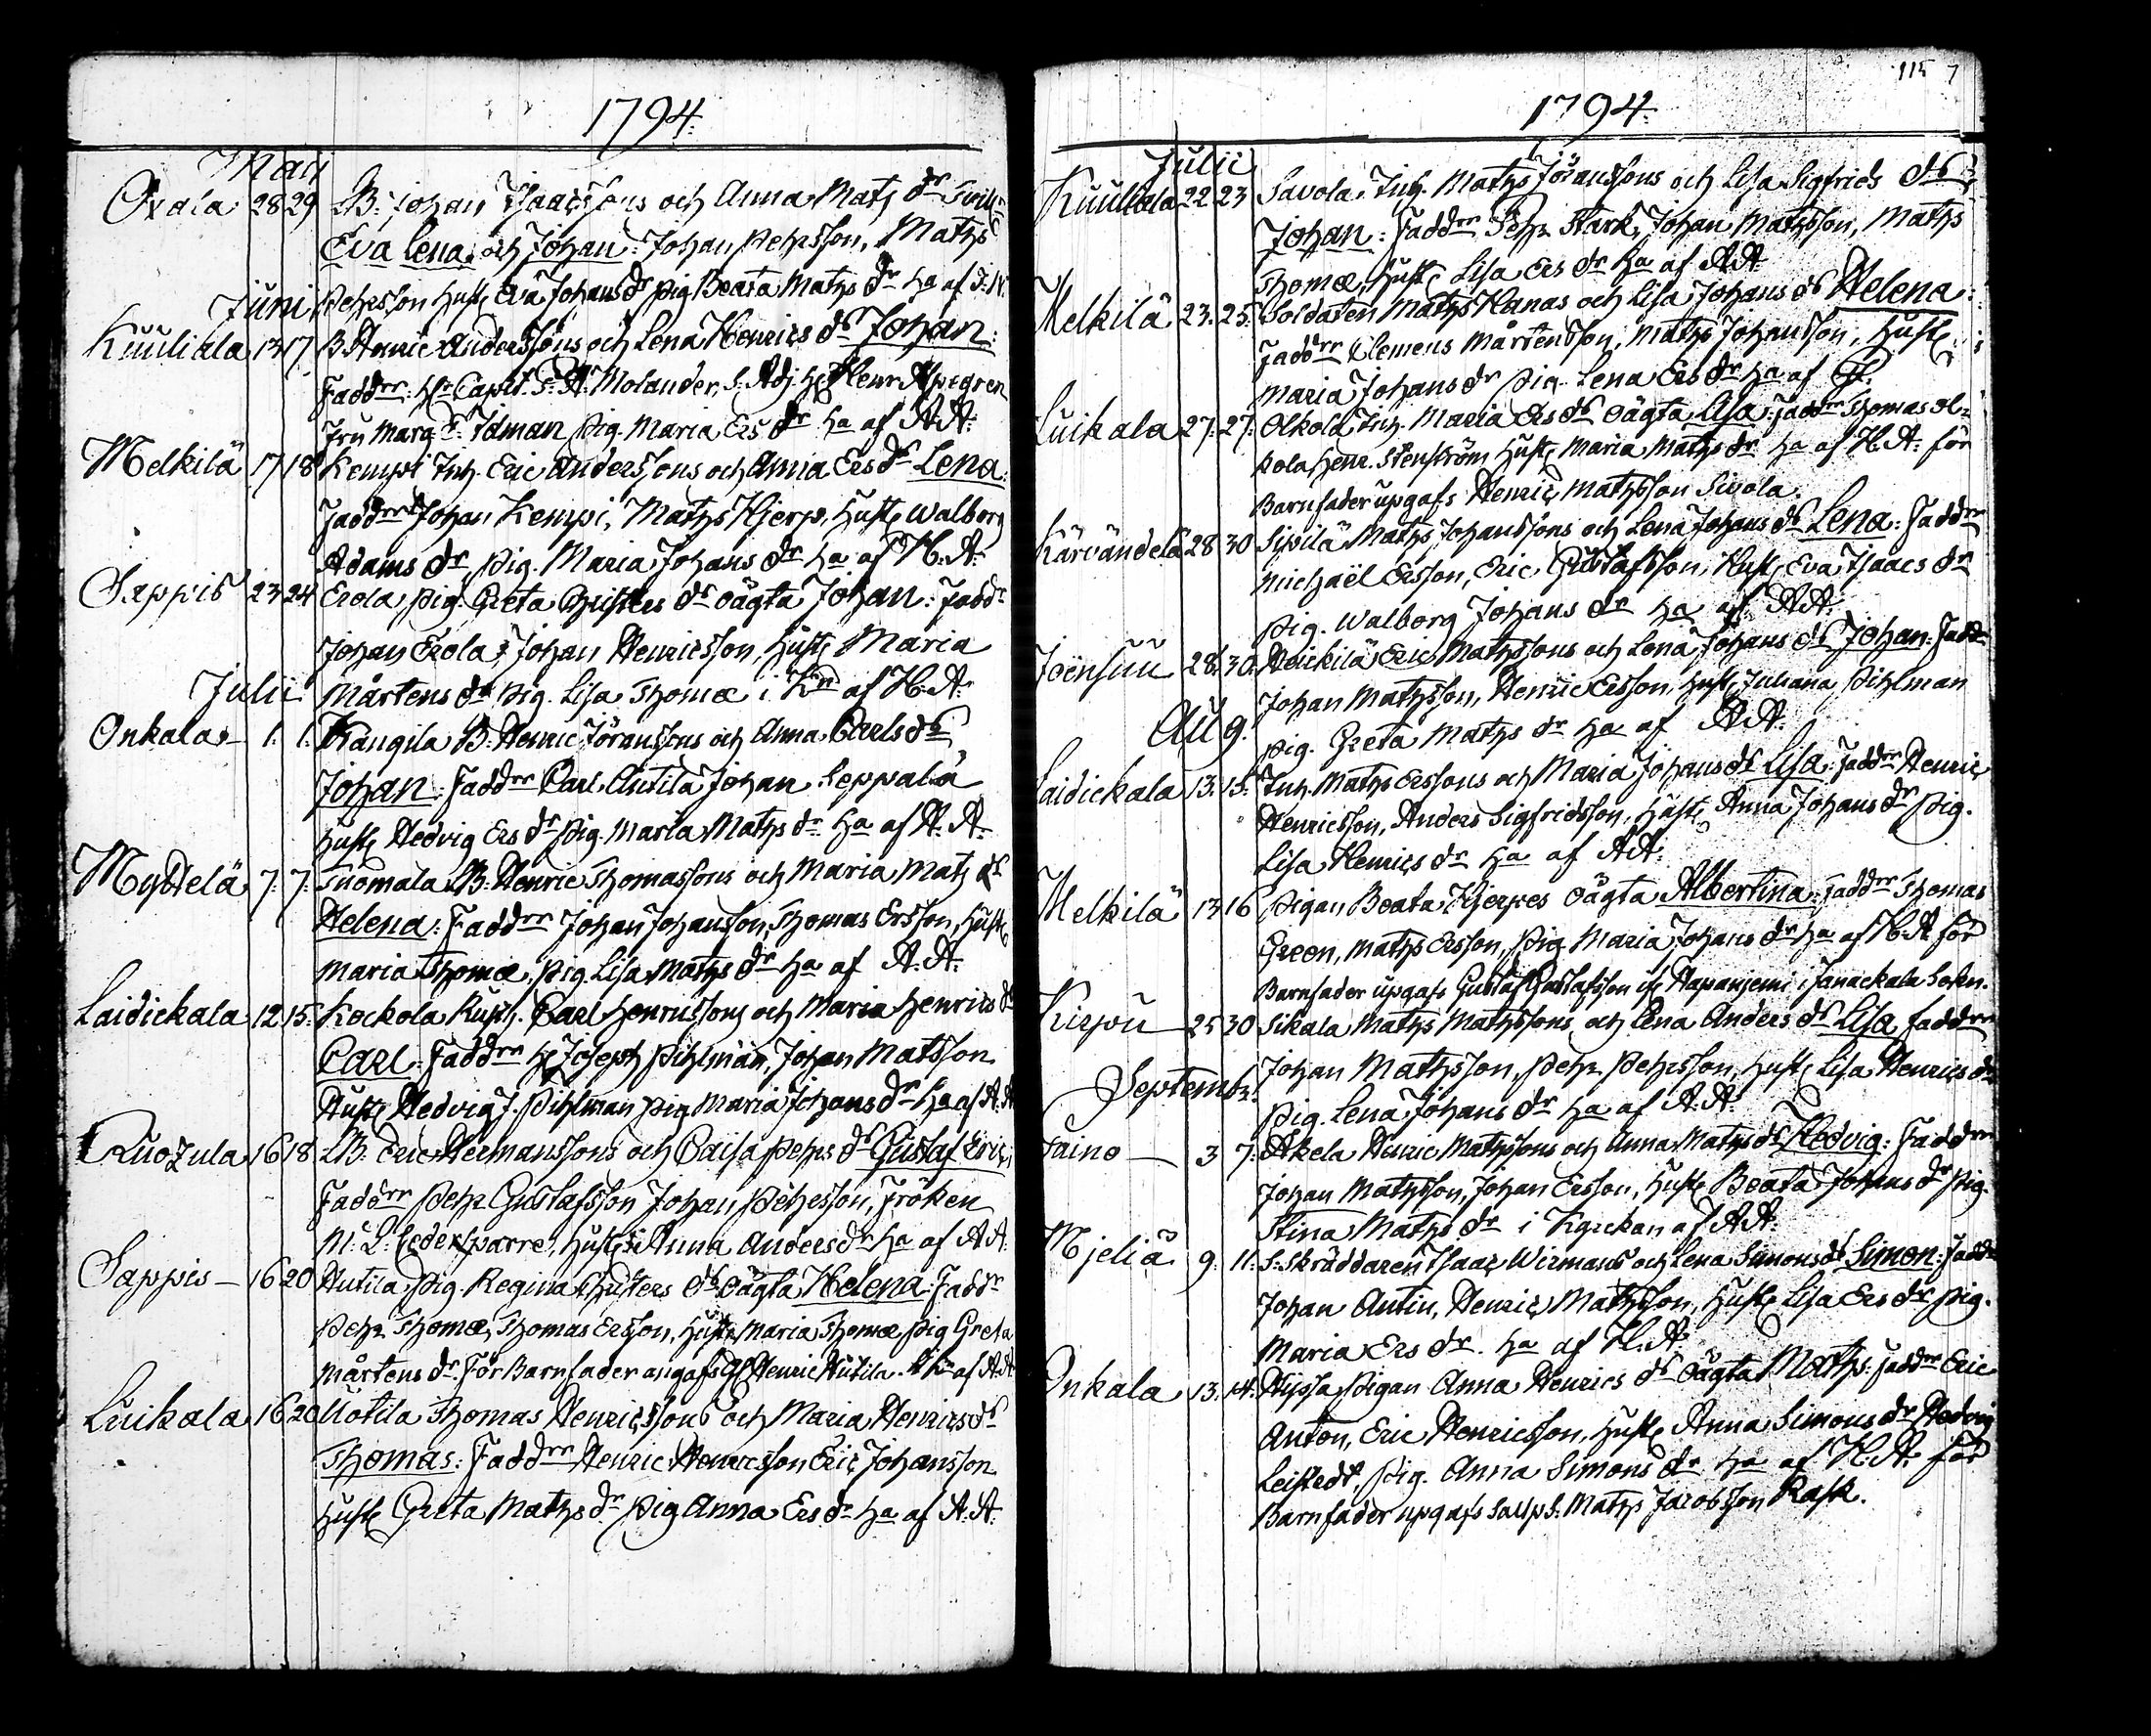 1794.
Maij
Oxala 28 29 LB: Johan Isaacssons och Anna Mats dr Tvill:
Eva Lena, och Johan: Johan Pehrsson, Maths
Juni Pehrsson Hust; Eva Johans dr pig. Beata Maths dr ha af
Kuuliala 13 17 B. Henric Anderssons och Lena Henrics ds Johan:
Faddrr: Hr Capit: Molander, S: Adj: Hr Henr. Alpegren
Fru Marg. E: Idman, pig. Maria Ers dr ha af A: A:
Melkilä 17 18 Kempi Inh. Eric Anderssons och Anna Ers ds Lena:
Faddrr Johan Kempi, Maths Hjerp, Hust; Walborg
Adams dr, pig. Maria Johans dr ha af H: A:
Sappis 23 24 Erola pig. Greta Christers ds oägta Johan: Faddr
Johan Erola, Johan Henricsson, Hust; Maria
Julii Mårtens dr pig. Lisa Thomæ i Kn af H: A:
Onkala 1: 1: Kangila B: Henric Jöranssons och Anna Carls ds
Johan: Faddrr Carl Autila Johan Leppalä
Hust; Hedvig Ers dr pig. Maria Maths dr ha af A: A:
Myttelä 7: 7: Tuomala B: Henric Thomassons och Maria Mats ds
Helena: Faddrr Johan Johansson, Thomas Ersson, Hust;
Maria Thomæ, pig. Lisa Maths dr ha af A: A:
Laidickala 12 15: Kockola Rusth. Carl Henricssons och Maria Henrics ds
Carl: Faddrr Hr Joseph Pihlman, Johan Matsson
Hust; Hedvig J. Pihlman pig Maria Johans dr ha af A: A:
Ruozula 16 18 LB: Eric Hermanssons och Caisa Pehrs ds Gustaf Eric:
Faddrr Pehr Gustafsson Johan Pehrsson, Fröken
M: L: Cedersparre, Hust; Anna Anders dr ha af A A:
Sappis 16 20 Hutila pig. Regina Christers ds oägta Helena: Faddr
Pehr Thomæ, Thomas Ersson, Hust; Maria Thomæ pig Greta
Mårtens dr. För Barnfader angafs Henric Hutila. af A: A:
Luikala 16 20 Uotila Thomas Henricssons och Maria Henrics ds
Thomas: Faddrr Henric Henricsson Eric Johansson
Hust; Greta Maths dr pig Anna Ers dr ha af A: A:
115 7
1794.
Julii
Kuuliala 22 23 Savola Inh. Maths Jöranssons och Lisa Sigfrids ds
Johan: Faddrr Pehr Stark, Johan Mathsson, Maths
Thomæ, Hust; Lisa Ers dr ha af A A:
Melkilä 23. 25. Soldaten Maths Hanas och Lisa Johans ds Helena:
Faddrr Clemens Mårtensson, Maths Johansson, Hust;
Maria Johans dr pig. Lena Ers dr ha af
Luikala 27: 27: Olkola Inh. Maria Ers ds oägta Lisa: Faddrr Thomas Ol-
kola Henr. Stenström Hust; Maria Maths dr ha af H: A: för
Barnfader upgafs Henric Mathsson Sivola.
Kärvändelä 28 30 Sipilä Maths Johanssons och Lena Johans ds Lena: Faddrr
Michaël Ersson, Eric Gustafsson, Hust; Eva Isaacs dr
pig. Walborg Johans dr ha af A A:
Joënsuu 28. 30. Heickilä Eric Mathssons och Lena Johans ds Johan: Faddr
Johan Mathsson, Henric Ersson, Hust; Juliana Pihlman
Aug. pig. Greta Maths dr ha af A A:
Laidickala 13. 15: Inh. Maths Erssons och Maria Johans ds Lisa: Faddrr Henric
Henricsson, Anders Sigfridsson, Hust; Anna Johans dr pig.
Lisa Henrics dr ha af A A:
Melkilä 13 16 Pigan Beata Hjerpes oägta Albertina: Faddrr Thomas
Green, Maths Ersson, pig. Maria Johans dr ha af H: A för
Barnfader upgafs Gustaf Gustafsson ifr Hapaniemi i Janackala Sokn.
Kirpu 25 30 Sikala Maths Mathssons och Lena Anders ds Lisa Faddrr
Johan Mathsson, Pehr Pehrsson, Hust; Lisa Henrics dr
Septembr: pig. Lena Johans dr ha af A: A:
Faino 3 7: Akela Henric Mathssons och Anna Maths ds Hedvig: Faddrr
Johan Mathsson, Johan Ersson, Hust; Beata Johans dr pig.
Stina Maths dr i Kyrckan af A A:
Mjeliä 9. 11: S: Skräddaren Isaac Wirmans och Lena Simons ds Simon: Faddr
Johan Antin, Henric Mathsson, Hust; Lisa Ers dr pig.
Maria Ers dr. ha af H: A:
Onkala 13. 14: Hypsa pigan Anna Henrics ds oägta Maths: Faddrr Eric
Anton, Eric Henricsson, Hust; Anna Simons dr Hedvig
Leistedt, pig. Anna Simons dr ha af H: A: för
Barnfader upgafs Maths Jacobsson Rask.